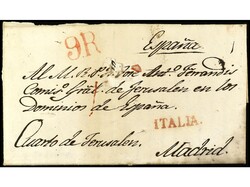 España
9R
Al M.R.P. Fr. Anto. Ferrandis
Comiso. Gral. de Jerusalen en los
Dominios de España.
ITALIA.
Cuarto de Jerusalen.
Madrid.